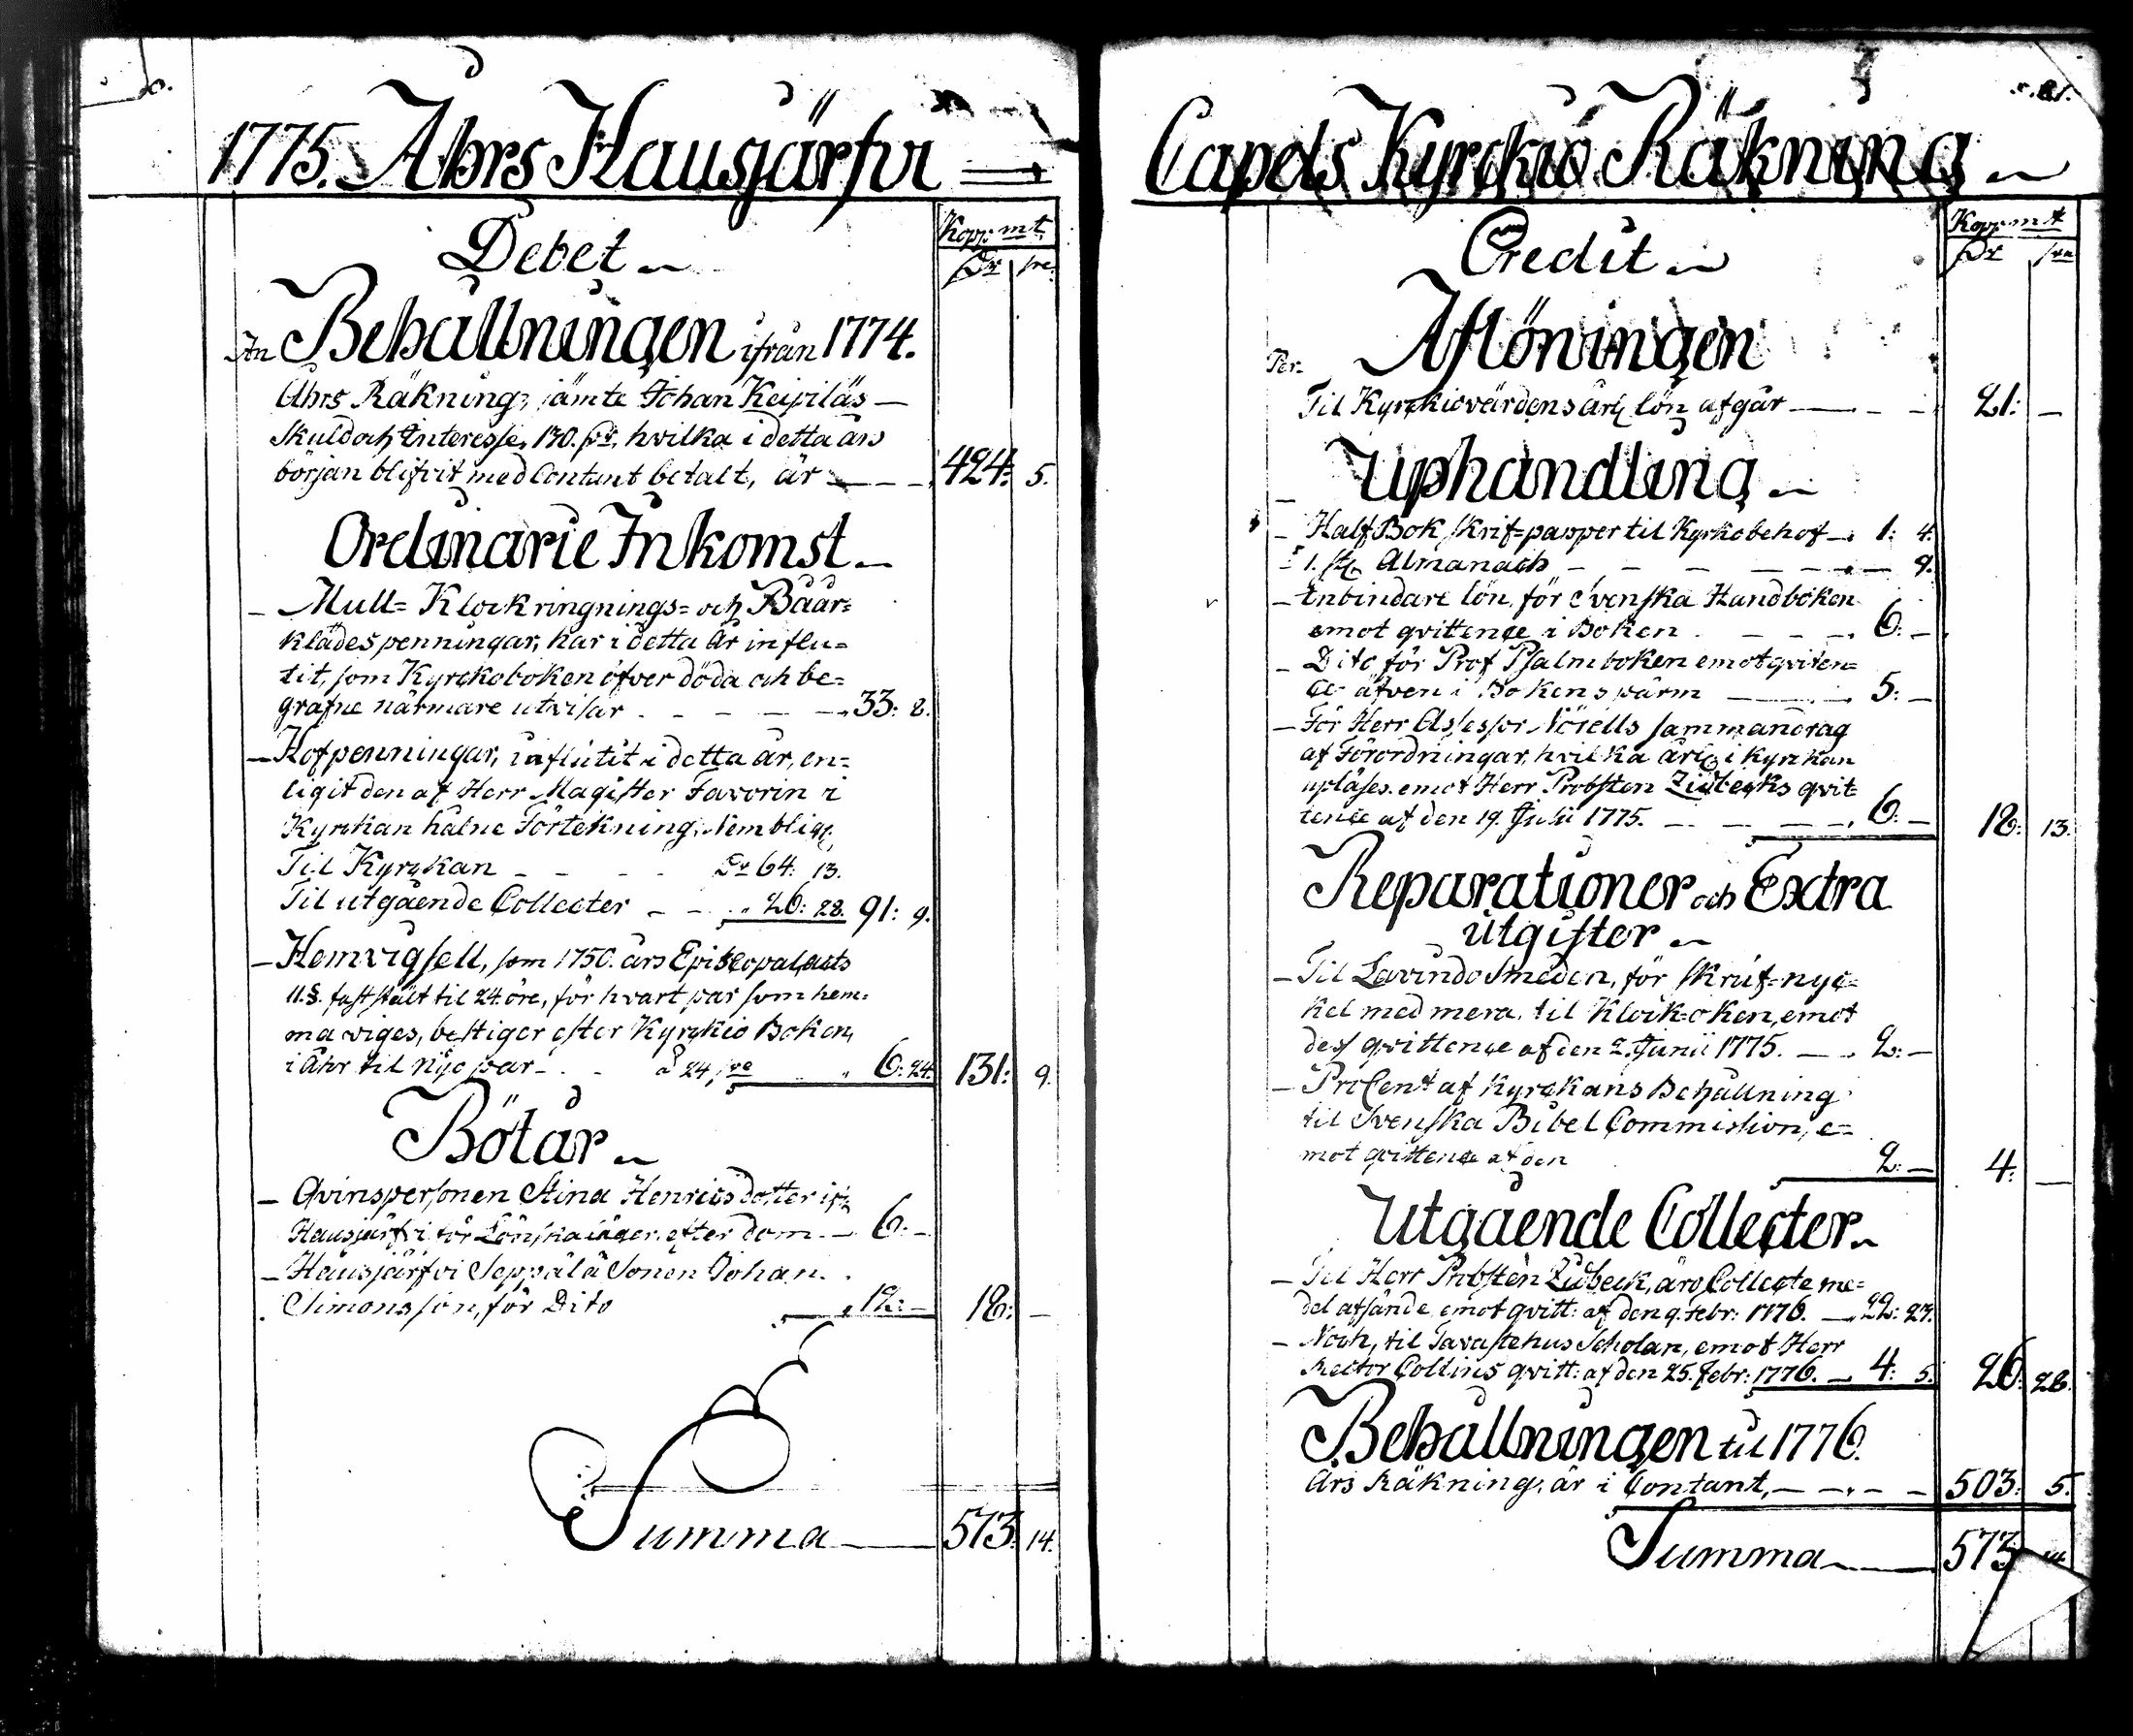 1775. Åhrs Hausjärfvi
Debet
Kopp mt.
Dr öre.
An Behållningen ifrån 1774.
Åhrs Räkning, jämte Johan Keipiläs
skuld och Interesse, 130. Dr, hvilka i detta års
början blifvit med Contant betalt, är 424: 5.
Ordinarie Inkomst
Mull= Klockringnings= och Båår=
klädespenningar, har i detta År influ=
tit, som Kyrckoboken öfver döda och be=
grafne närmare utvisar 33: 8.
Hofpenningar, influtit i detta år, en=
ligit den af Herr Magister Favorin i
Kyrckan håine Förtekning, Nembligl.
Til Kyrckan Dr 64: 13.
Til utgående Collecter 26: 28. 91: 9.
Hemvigsell, som 1750. års Episcopal acts
11.§. fastställt til 24. öre, för hvart par som hem=
ma viges, bestiger efter Kyrckio Boken,
i Åhr til Nijo par å 24 öre 6: 24. 131: 9.
Böter
Qvinspersonen Stina Henricsdotter ifr.
Hausjärfvi för Lönskaläger, efter dom 6: –
Hausjärfvi Seppälä Sonen Johan
Simonsson, för Dito 12: – 18: –
Summa 573: 14.
Capels Kyrckio Räkning
Credit
Kopp mt
Dr öre
Per. Aflöningen
Til Kyrckiovärdens årl. lön afgår 21: –
Uphandling
Half Bok skrif=papper til Kyrko behof 1: 4.
1. st. Almanach 9.
Inbindare lön, för Svenska Handboken
emot qvittence i Boken 6: –
Dito för Prof Psalmboken emot qviten=
ce äfven i Bokens pärm 5: –
För Herr Assessor Nöiells sammandrag
af Förordningar, hvilka årl. i kyrckan
upläses, emot Herr Probsten Zidbecks qvit=
tence af den 19. Julii 1775. 6: – 18: 13.
Reparationer och Extra
utgifter
Til Lavindo Smeden, för skruf=nyc=
kel med mera, til Klock=oken, emot
dess qvittence af den 2. Junii 1775. 2: –
ProCent af Kyrckans Behållning
til Svenska Bibel Commission, e=
mot qvittence af den 2: – 4: –
Utgående Collecter
Til Herr Probsten Zidbeck, äro Collecte me=
del afsände, emot qvitt: af den 9. Febr: 1776. 22: 23.
Noch, til Tavastehus Scholan, emot Herr
Rector Collins qvitt: af den 25. Febr: 1776. 4: 5. 26: 28.
Behållningen til 1776.
Års Räkning, är i Contant, 503: 5.
Summa 573